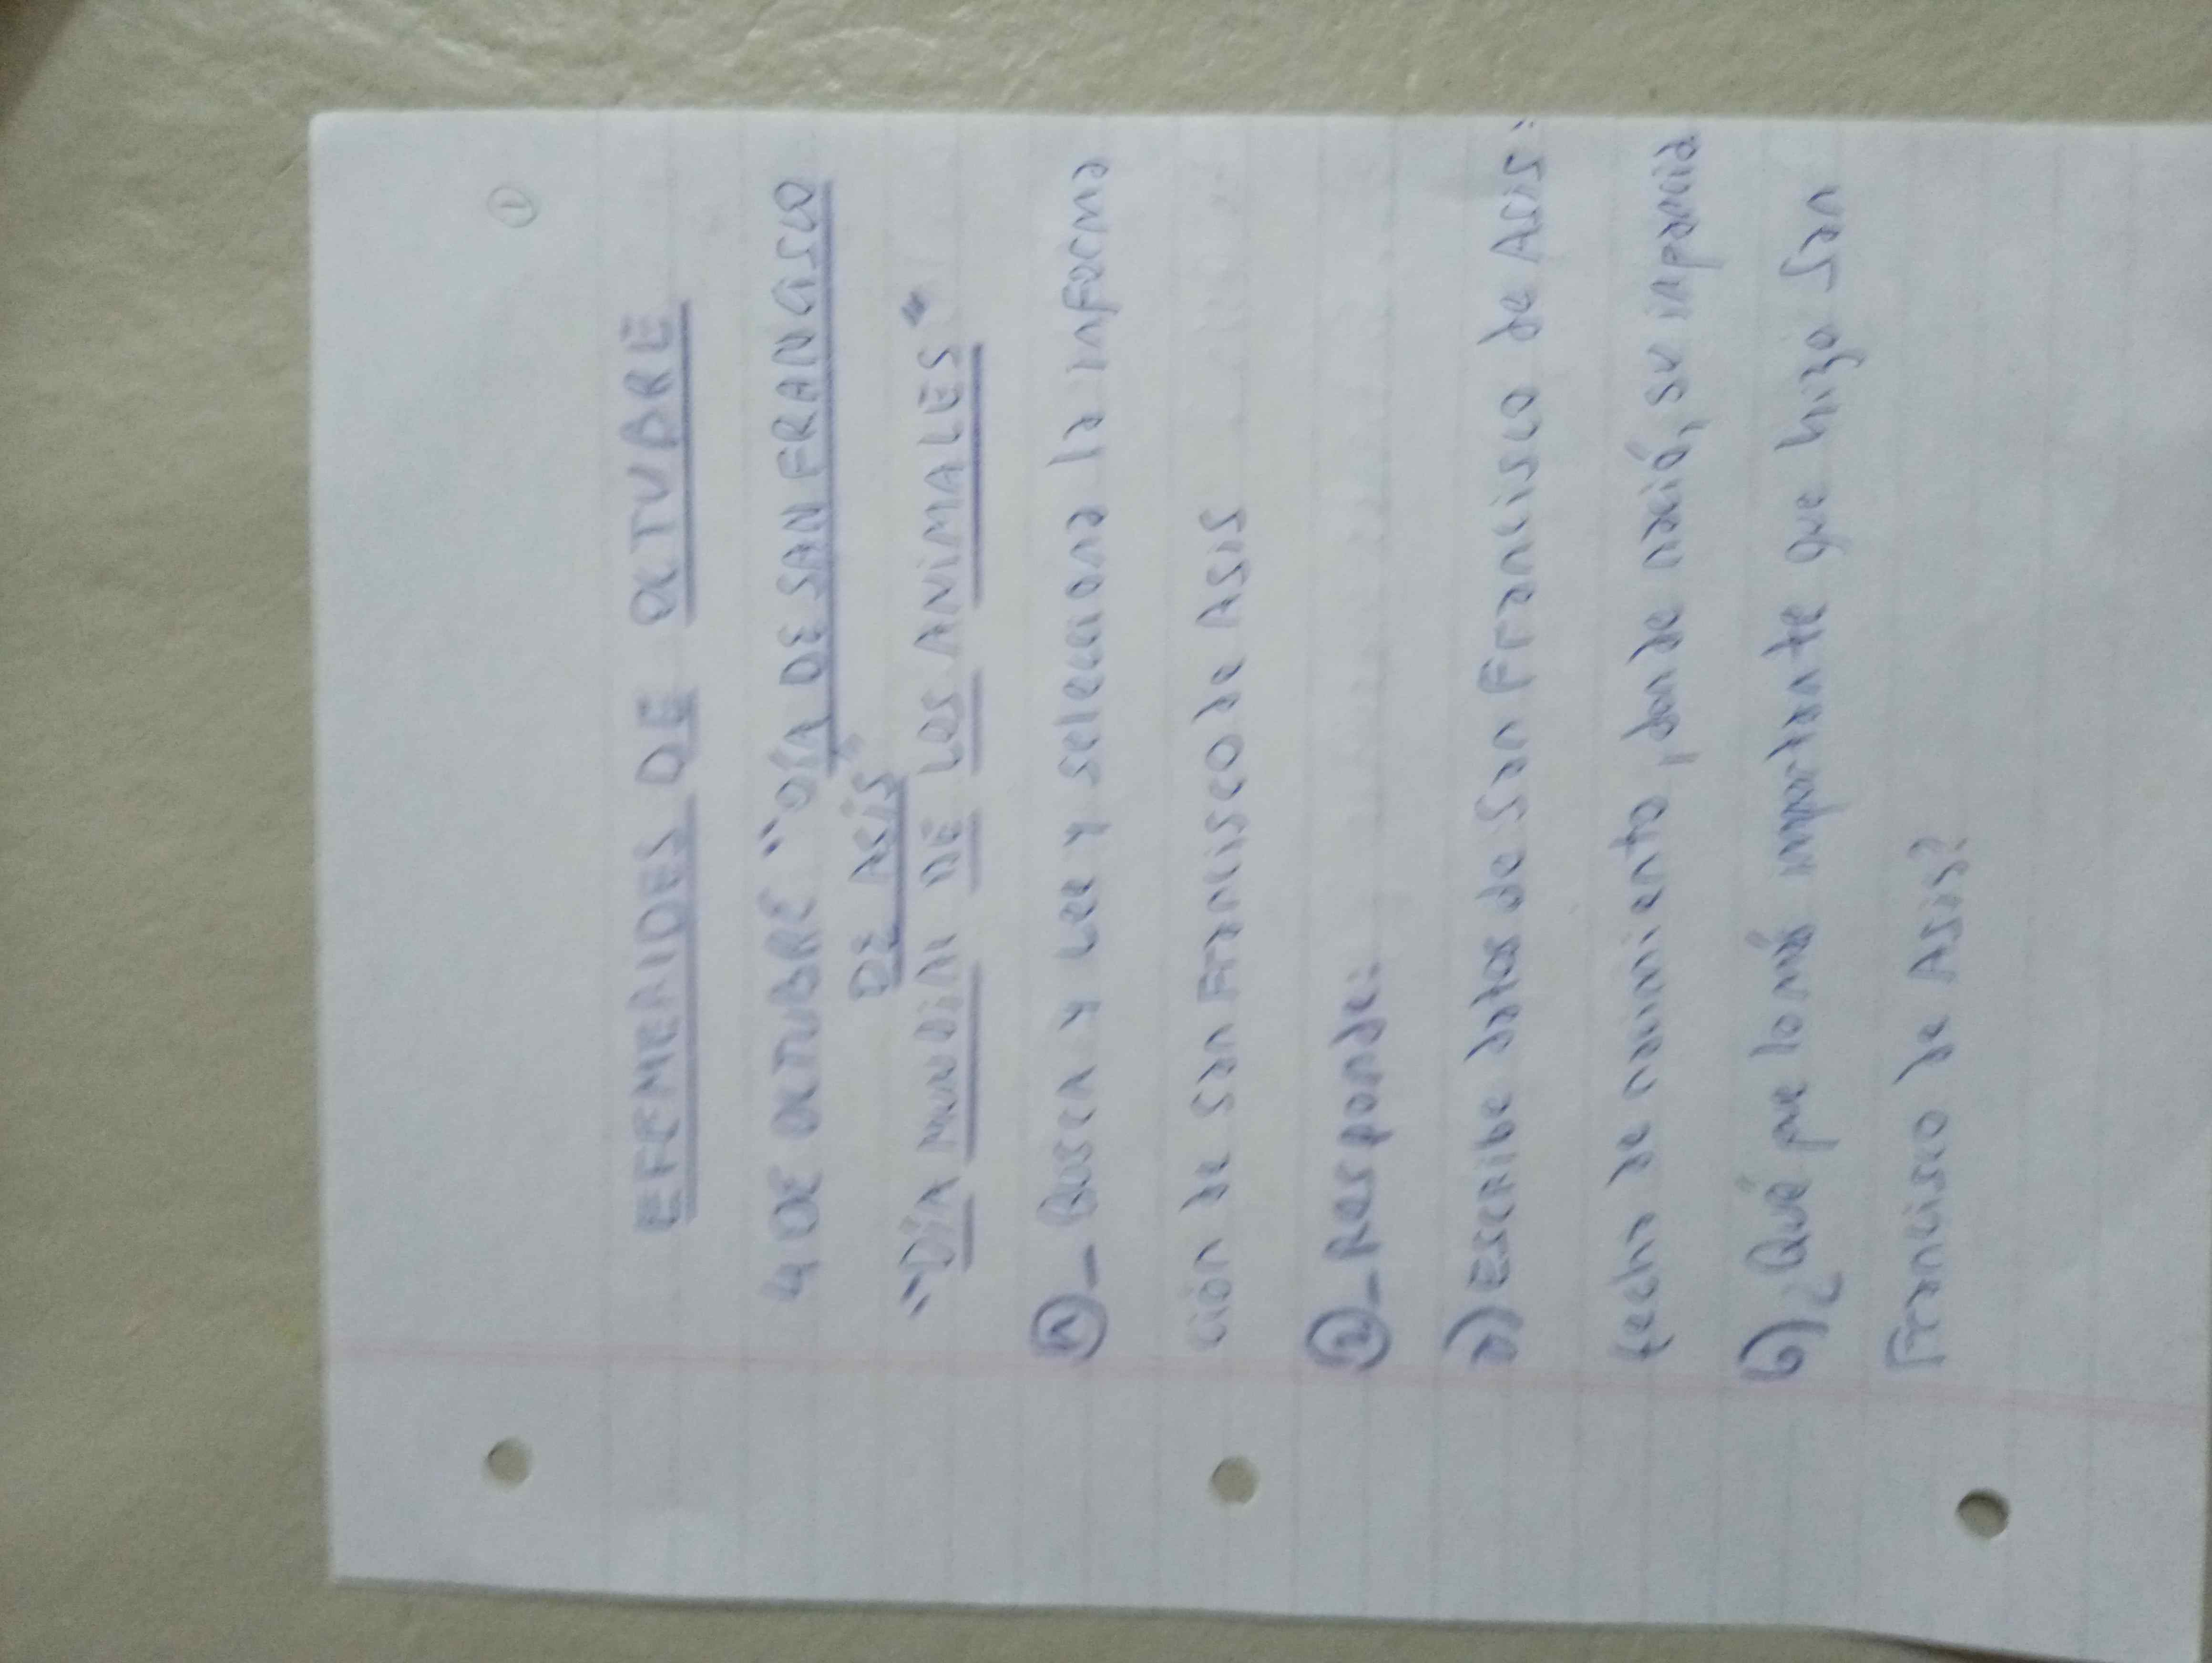 1
EFEMERIDES DE OCTUBRE
4 DE OCTUBRE "DÍA DE SAN FRANCISCO
DE ASÍS"
"DÍA MUNDIAL DE LOS ANIMALES"
1_ Busca y Lee y selecciona la informa
ción de San Francisco de Asis
2_ Responde:
a) Escribe datos de San Francisco de Asis:
fecha de nacimiento, donde nació, su
b) ¿Qué fue lo más importante que hizo San
Francisco de Asis?